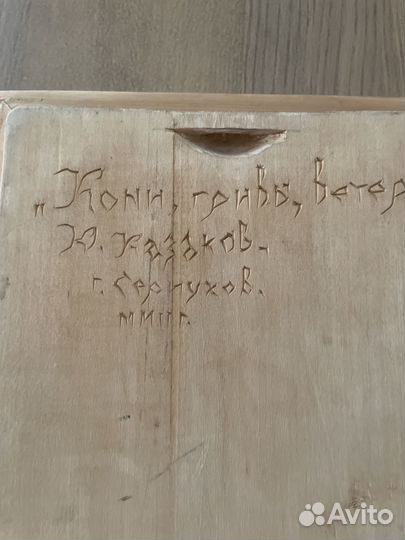 „Кони, гривы, ветер
Ю. Казаков.
г. Серпухов.
Avito